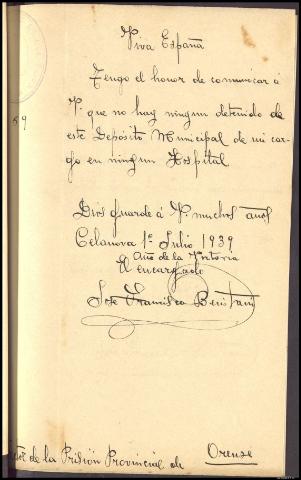 Viva España
Tengo el honor de comunicar á
V. que no hay ningun detenido de
este Depósito Municipal de mi car-
go en ningun Hospital
59
Dios guarde á V. muchos años
Celanova 1º Julio 1939
Año de la Victoria
El encargado
José Francisco
de la Prisión Provincial de Orense